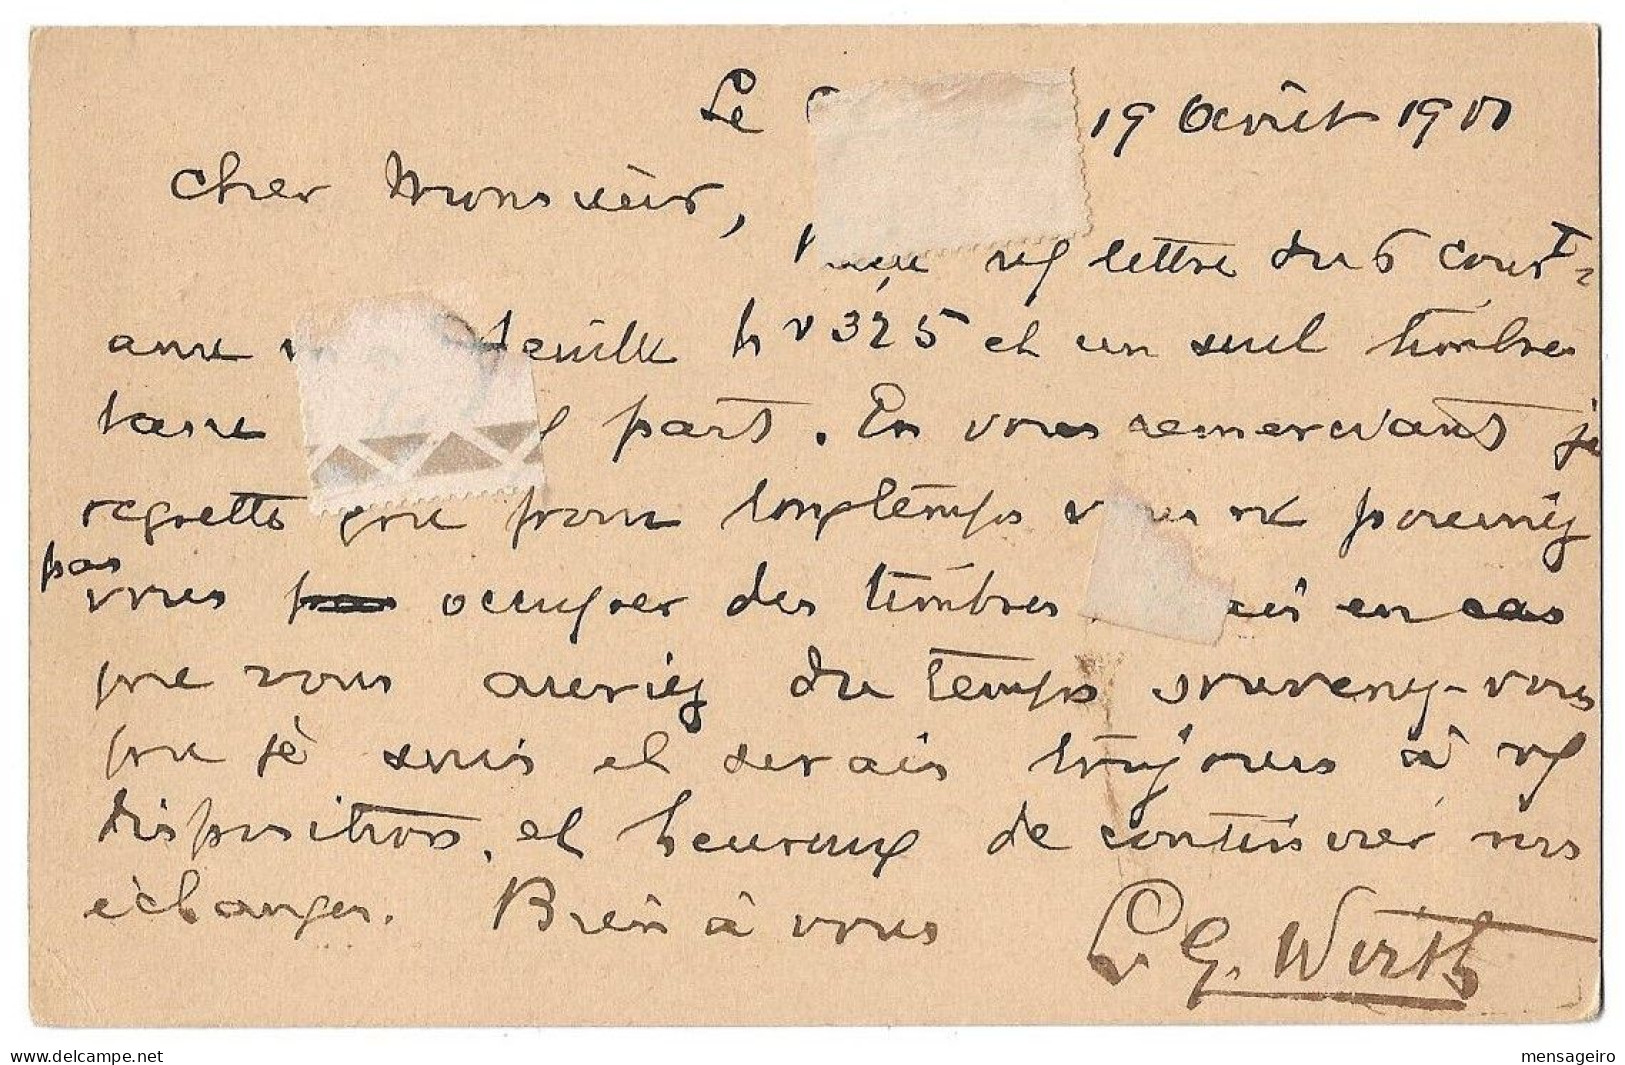 Le 19 Août 1911
Cher Monsieur,
reçu lettre du 6 court
avec feuille No 325 et un seul timbre
taxe part. En vous remerciant je
regrette que pour longtemps vous ne pouviez
pas
vous occuper des timbres mais en cas
que vous auriez du temps souvenez-vous
que je suis et serais toujours à
disposition, et heureux de continuer nos
échanges. Bien à vous G. Wirth
mensageiro